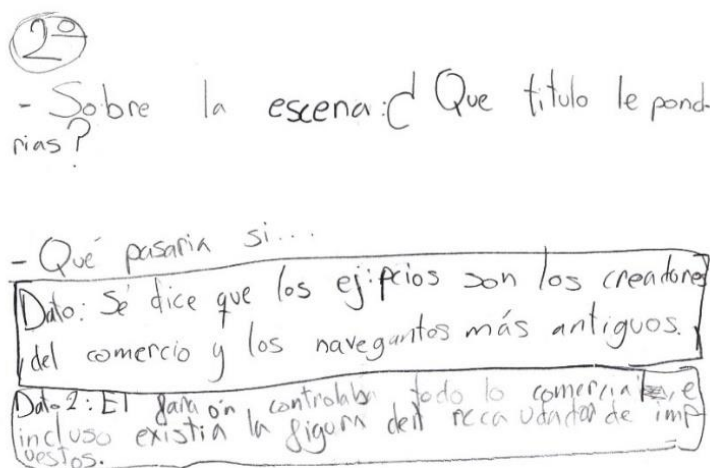 2º
- Sobre la escena: ¿Que titulo le pond-
rias?
- Qué pasaria si...
Dato: Sé dice que los ejipcios son los creadores
del comercio y los navegantos más antiguos.
Dato 2: El faraón controlaba todo lo comercial, e
incluso existia la figura del recaudador de imp
uestos.